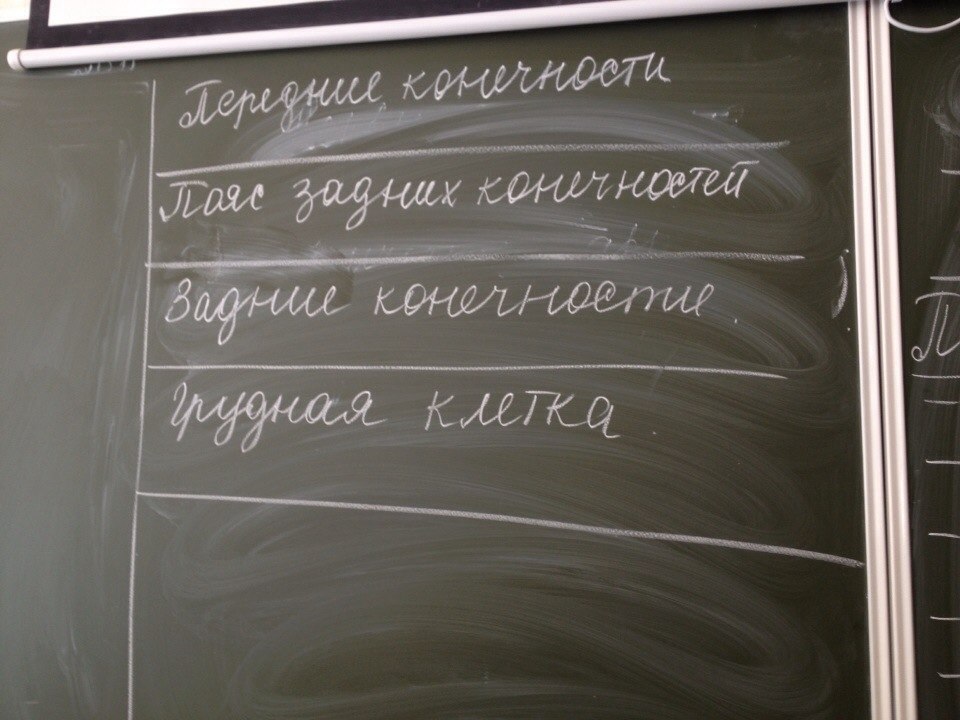 Передние конечности
Пояс задних конечностей
Задние конечности
Грудная клетка
П